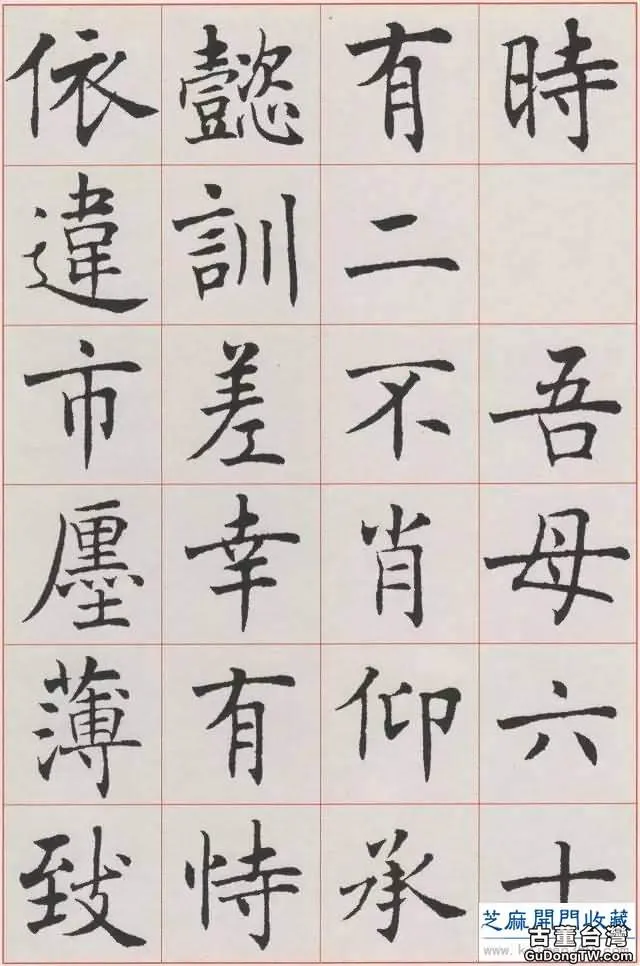 時 吾母六十
有二不肖仰承
懿訓差幸有恃
依違市廛薄致
芝麻開門收藏
古董台灣
GuDongTW.com